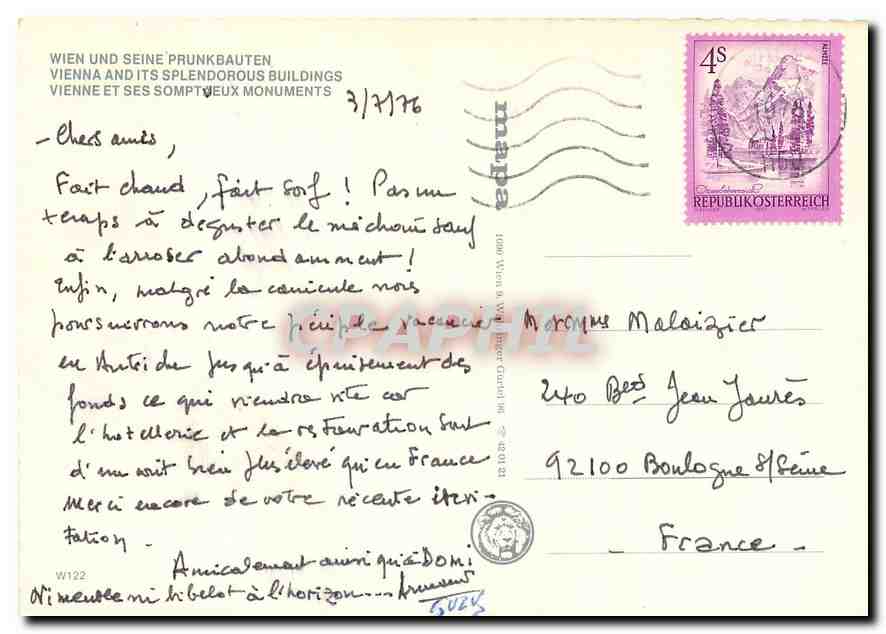 WIEN UND SEINE PRUNKBAUTEN
VIENNA AND ITS SPLENDOROUS BUILDINGS
VIENNE ET SES SOMPTUEUX MONUMENTS
3/7/76
- Chers amis,
Fait chaud, fait soif ! Pas un
temps à déguster le méchoui sauf
à l'arroser abondamment !
Enfin, malgré la canicule nous
poursuivrons notre périple vacancier
en Autriche jusqu'à épuisement des
fonds ce qui viendra vite car
l'hotellerie et la restauration sont
d'un coût bien plus élevé qu'en France
Merci encore de votre récente invi-
tation.
Amicalement ainsi qu'à DOMI
Ni meuble ni bibelot à l'horizon ...
SUZY
W122
mapa
1090 Wien 9, Währinger Gürtel 96 42 01 21
4S
ALMSEE
REPUBLIK ÖSTERREICH
Mr et Mme Maloizier
240 Bed Jean Jaurès
92100 Boulogne s/Seine
- France -
CPAPHIL